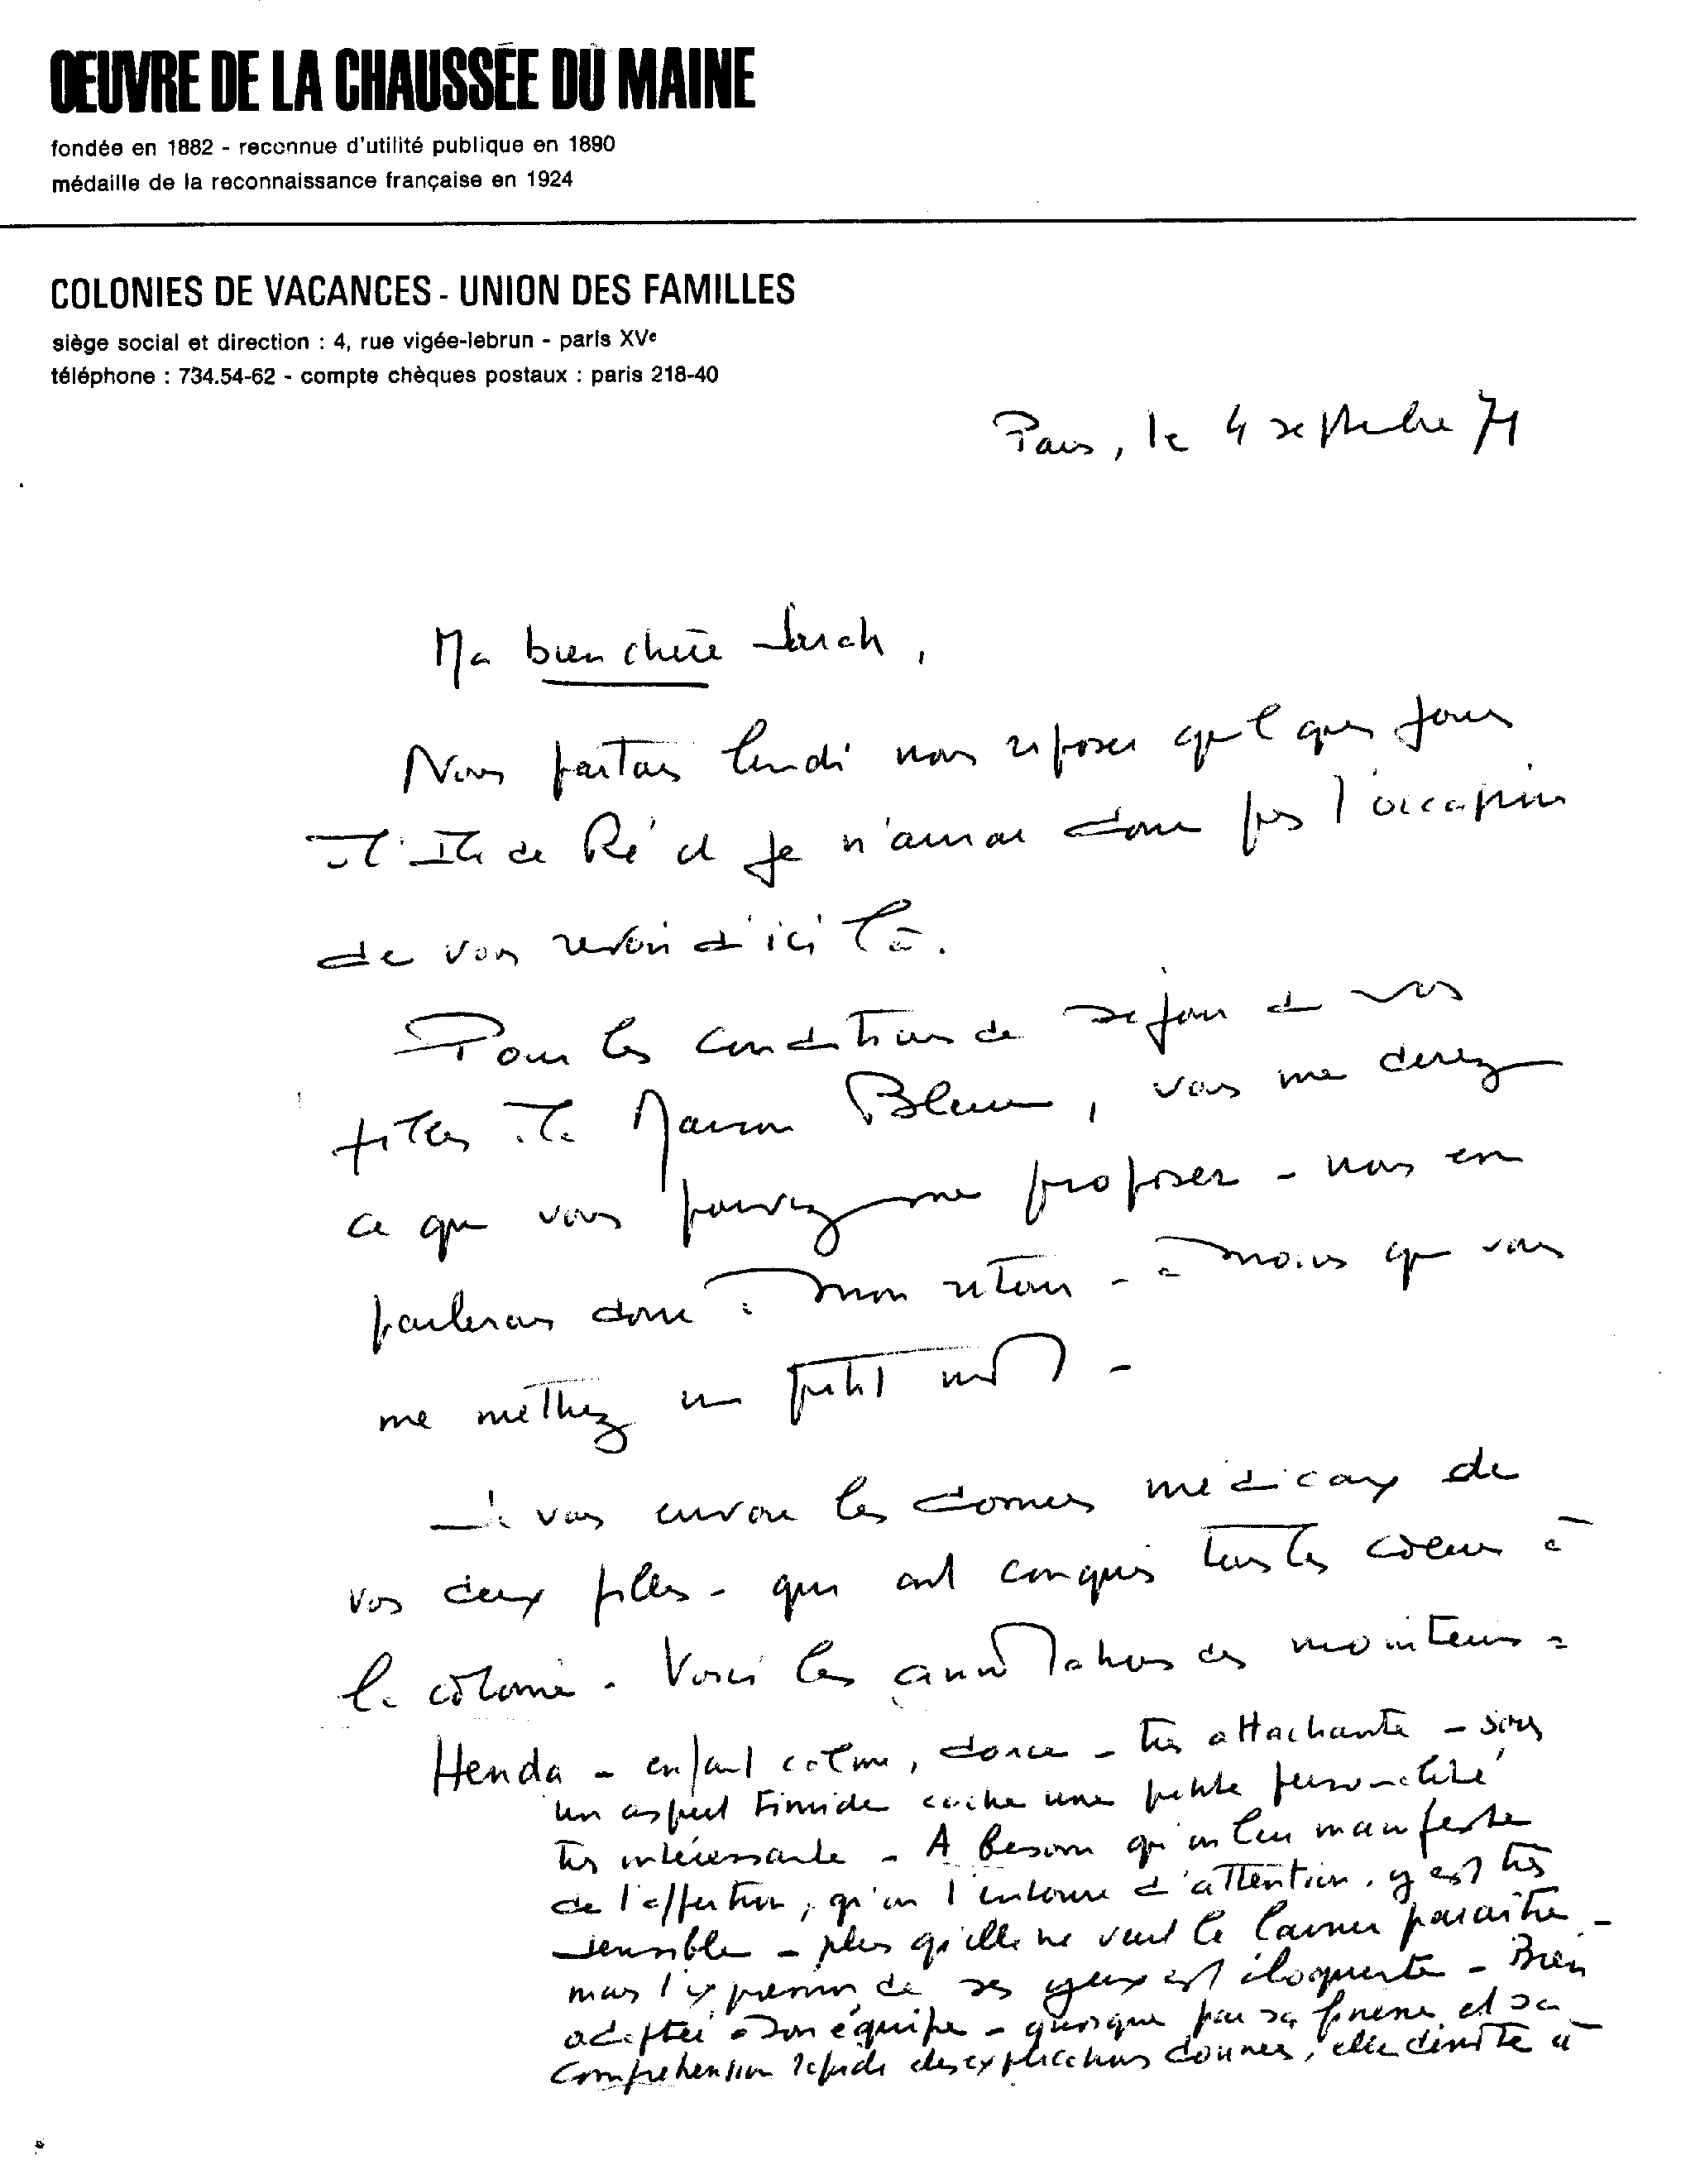 ŒUVRE DE LA CHAUSSÉE DU MAINE
fondée en 1882 - reconnue d'utilité publique en 1890
médaille de la reconnaissance française en 1924
COLONIES DE VACANCES - UNION DES FAMILLES
siège social et direction : 4, rue vigée-lebrun - paris XVe
téléphone : 734.54-62 - compte chèques postaux : paris 218-40
Paris, le 4 septembre 71
Ma bien chère Sarah,
Nous partons lundi nous reposer quelques jours
à l'Ile de Ré et je n'aurai donc pas l'occasion
de vous revoir d'ici là.
Pour les conditions de séjour de vos
filles à la Maison Bleue, vous me direz
ce que vous pouvez me proposer - nous en
parlerons donc à mon retour - à moins que vous
me mettiez un petit mot -
Je vous envoie les dossiers médicaux de
vos deux filles - qui ont conquis tous les coeurs à
la colonie. Voici les annotations des moniteurs =
Henda - enfant calme, douce - très attachante - sous
un aspect timide cache une petite personnalité
très intéressante - A besoin qu'on lui manifeste
de l'affection, qu'on l'entoure d'attention, y est très
sensible - plus qu'elle ne veut le laisser paraître -
mais l'expression de ses yeux est éloquente - Bien
adaptée à son équipe - quoique par sa finesse et sa
compréhension rapide des explications données, elle dénote à